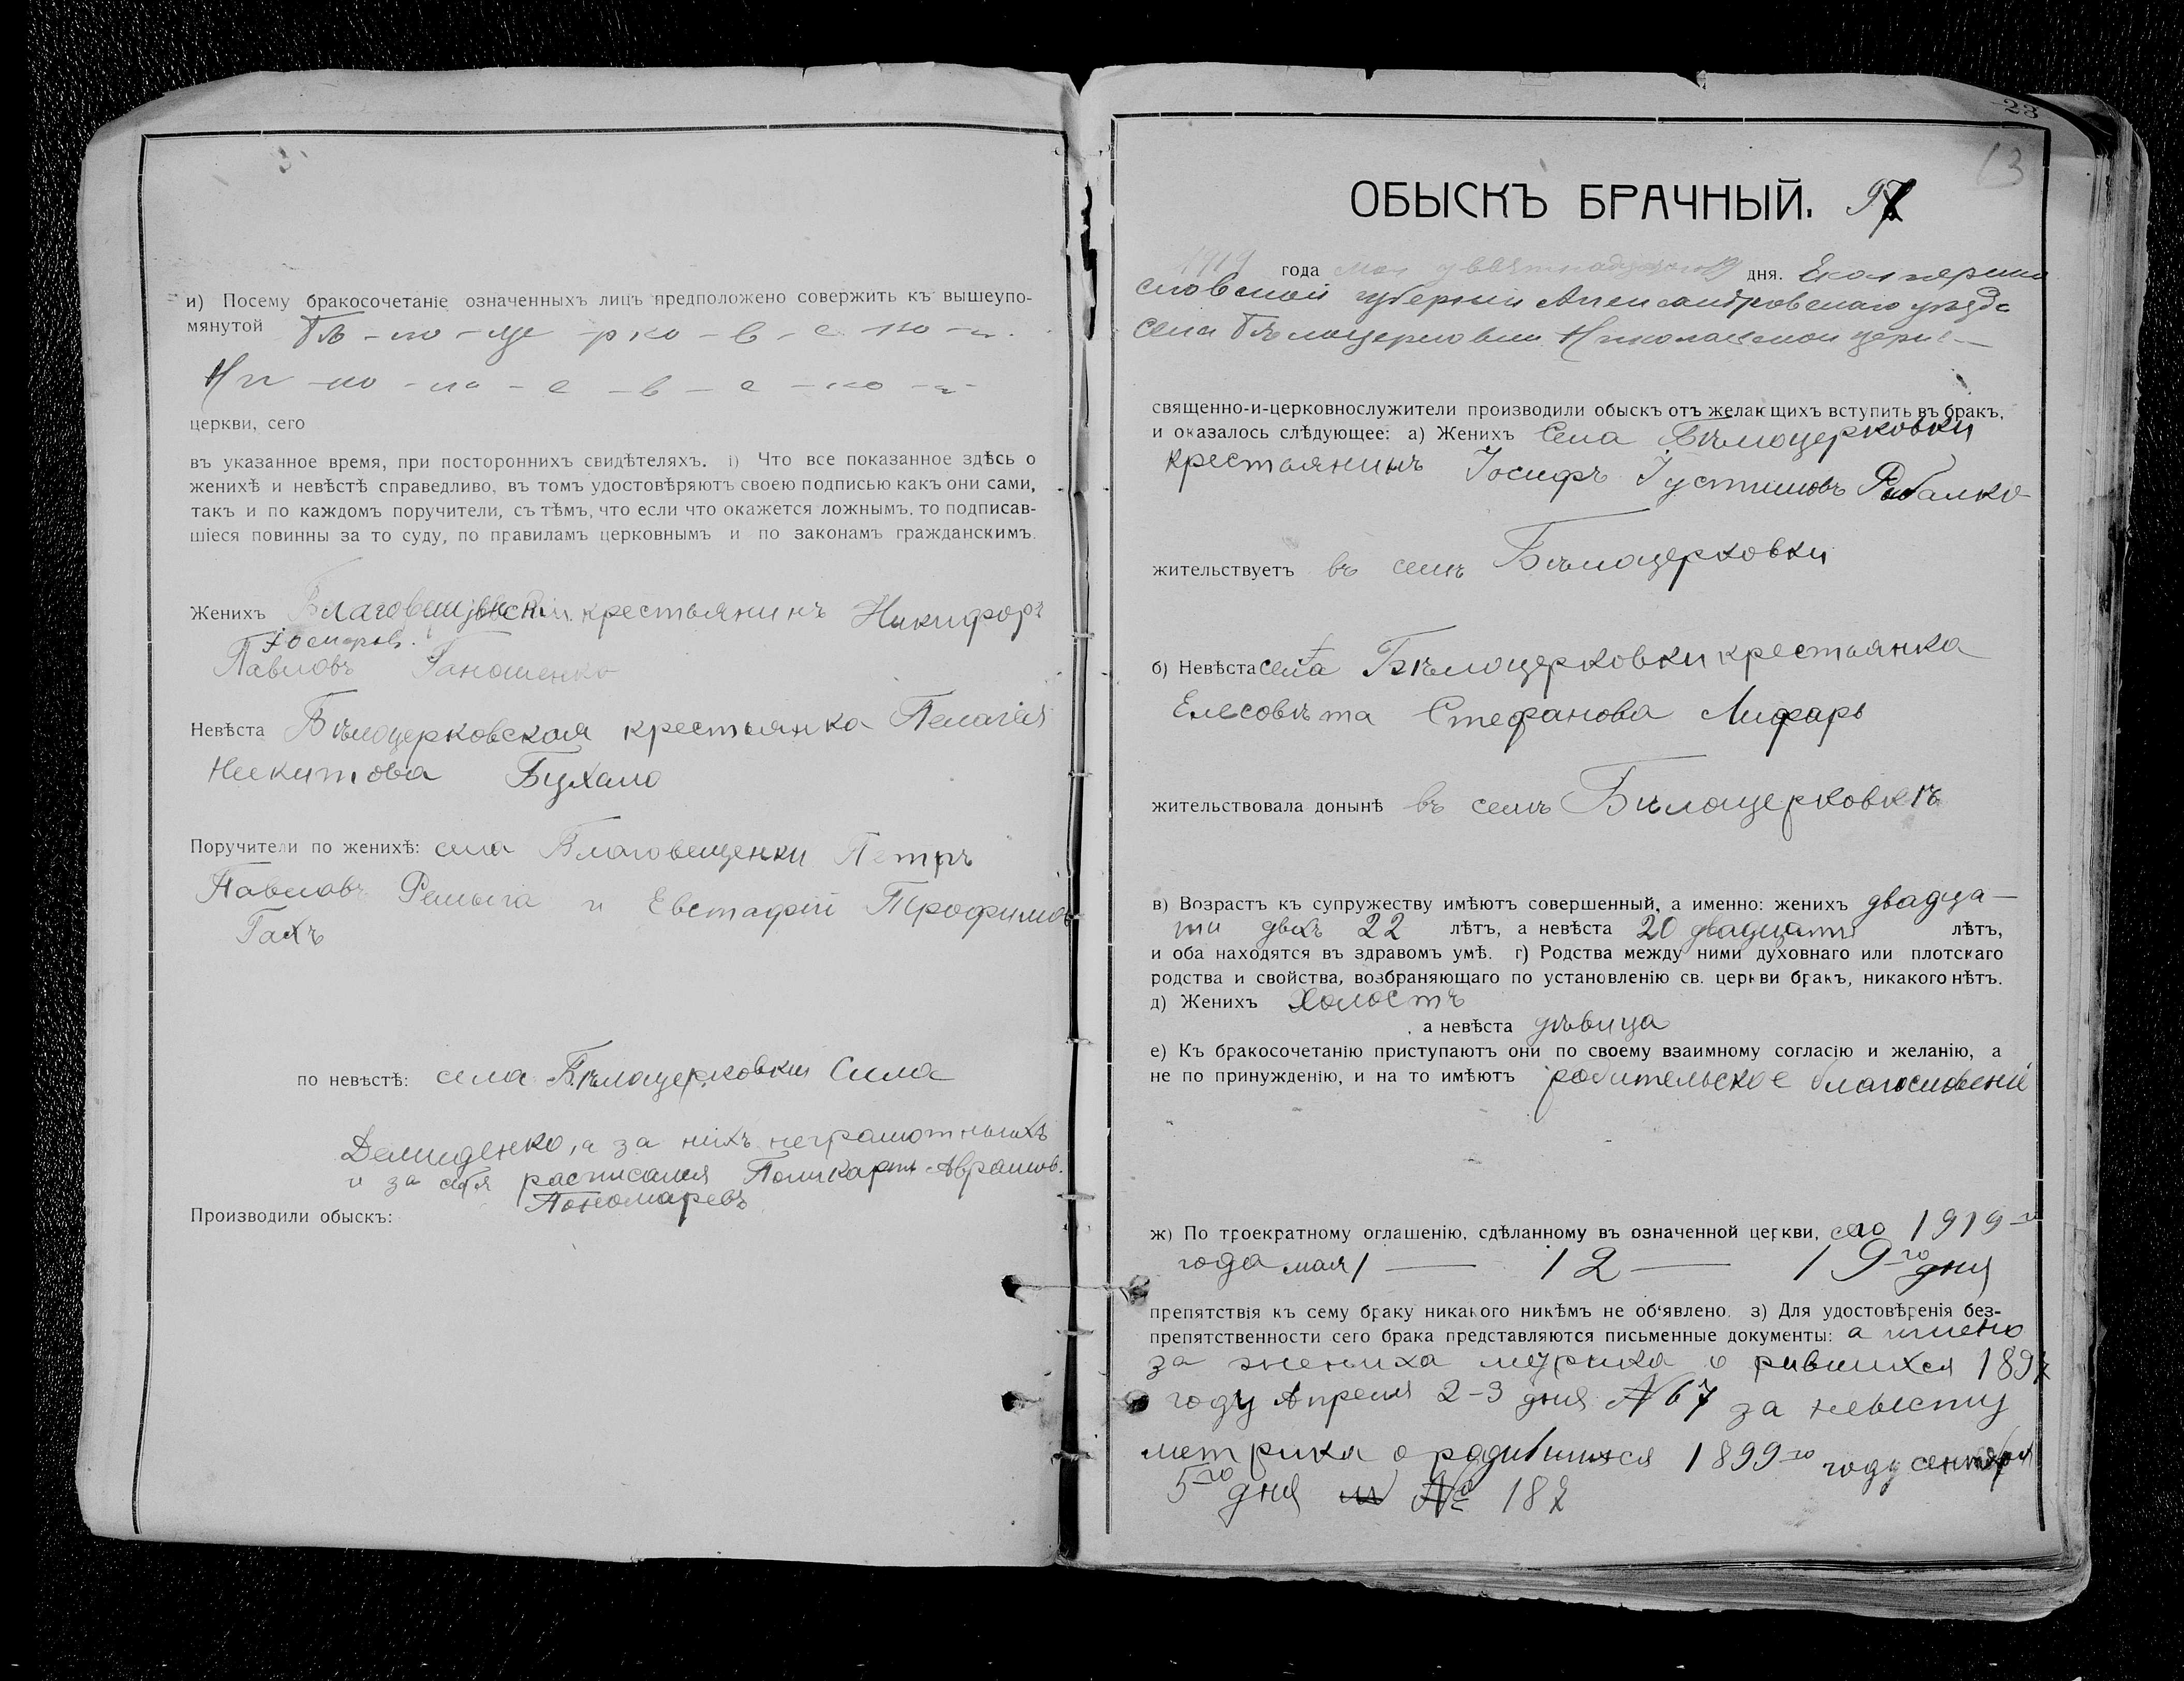 и) Посему бракосочетаніе означенныхъ лицъ предположено совержить къ вышеупо-
мянутой Бѣ-ло-це-рко-в-с-ко-й
Ни-ко-ла-е-в-с-ко-й
церкви, сего
въ указанное время, при постороннихъ свидѣтеляхъ. і) Что все показанное здѣсь о
женихѣ и невѣстѣ справедливо, въ томъ удостовѣряютъ своею подписью какъ они сами,
такъ и по каждомъ поручители, съ тѣмъ, что если что окажется ложнымъ, то подписав-
шіеся повинны за то суду, по правиламъ церковнымъ и по законамъ гражданскимъ.
Женихъ крестьянинъ Никифоръ
Павловъ
Невѣста Бѣлоцерковская крестьянка Пелагія
Никитова Бухало
Поручители по женихѣ: села Благовещенки Петръ
Павловъ Ремыга и Евстафій Трофимов
Гахъ
по невѣстѣ: села Бѣлоцерковки Сила
Демиденко, а за нихъ неграмотныхъ
и за себя расписался Поликарпъ Аврамов.
Пономаревъ
Производили обыскъ:
23
13
ОБЫСКЪ БРАЧНЫЙ. 97
1919 года мая девятнадцатого 19 дня. Екатерино
славской губерніи Александровскаго уезда
села Бѣлоцерковки Николаевской церкв
священно-и-церковнослужители производили обыскъ отъ желающихъ вступить въ бракъ,
и оказалось слѣдующее: а) Женихъ Села Бѣлоцерковки
крестьянинъ Іосифъ Іустиновъ Рыбалко
жительствуетъ въ селѣ Бѣлоцерковки
б) Невѣста села Бѣлоцерковки крестьянка
Елесовѣта Стефанова Лифарь
жительствовала донынѣ въ селѣ Бѣлоцерковкѣ
в) Возрастъ къ супружеству имѣютъ совершенный, а именно: женихъ двадца-
ти двехъ 22 лѣтъ, а невѣста 20 двадцати лѣтъ,
и оба находятся въ здравомъ умѣ. г) Родства между ними духовнаго или плотскаго
родства и свойства, возбраняющаго по установленію св. церкви бракъ, никакого нѣтъ.
д) Женихъ Холостъ
, а невѣста дѣвица
е) Къ бракосочетанію приступаютъ они по своему взаимному согласію и желанію, а
не по принужденію, и на то имѣютъ родительское благословеніе
ж) По троекратному оглашенію, сдѣланному въ означенной церкви, сего 1919-го
года мая 1 — 12 — 19-го дня
препятствія къ сему браку никакого никѣмъ не об‘явлено. з) Для удостовѣренія без-
препятственности сего брака представляются письменные документы: а имено
за жениха о 1897
году Апреля 2-3 дня № 67 за невесту
метрика о родившихся 1899-го году сентября
5-го дня № 187